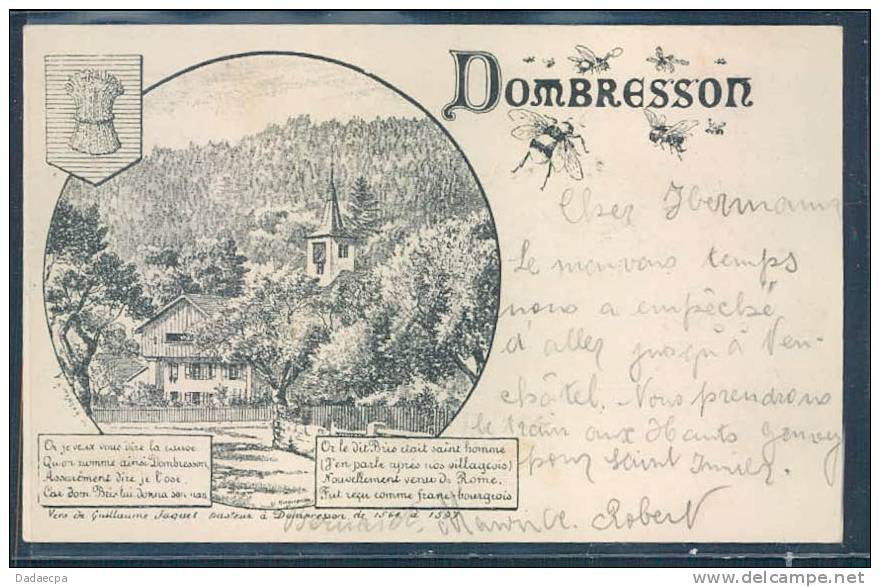 DOMBRESSON
Cher Hermann
Le mauvais temps
nous a empêché
d'aller jusqu'à Neu-
châtel. Nous prendrons
le train aux Hauts Genvey
pour Saint Imier.
Maurice. Robert
Or je veux vous dire la cause
Qu'on nomme ainsi Dombresson,
Assurément dire je l'ose,
Car dom Bris lui donna son nom
Or le dit Bris était saint homme
(J'en parle après nos villageois)
Nouvellement venu de Rome,
Fut reçu comme franc-bourgeois
Vers de Guillaume Jaquet pasteur à Dombresson de 1564 à
Dadaecpa
www.delcampe.net